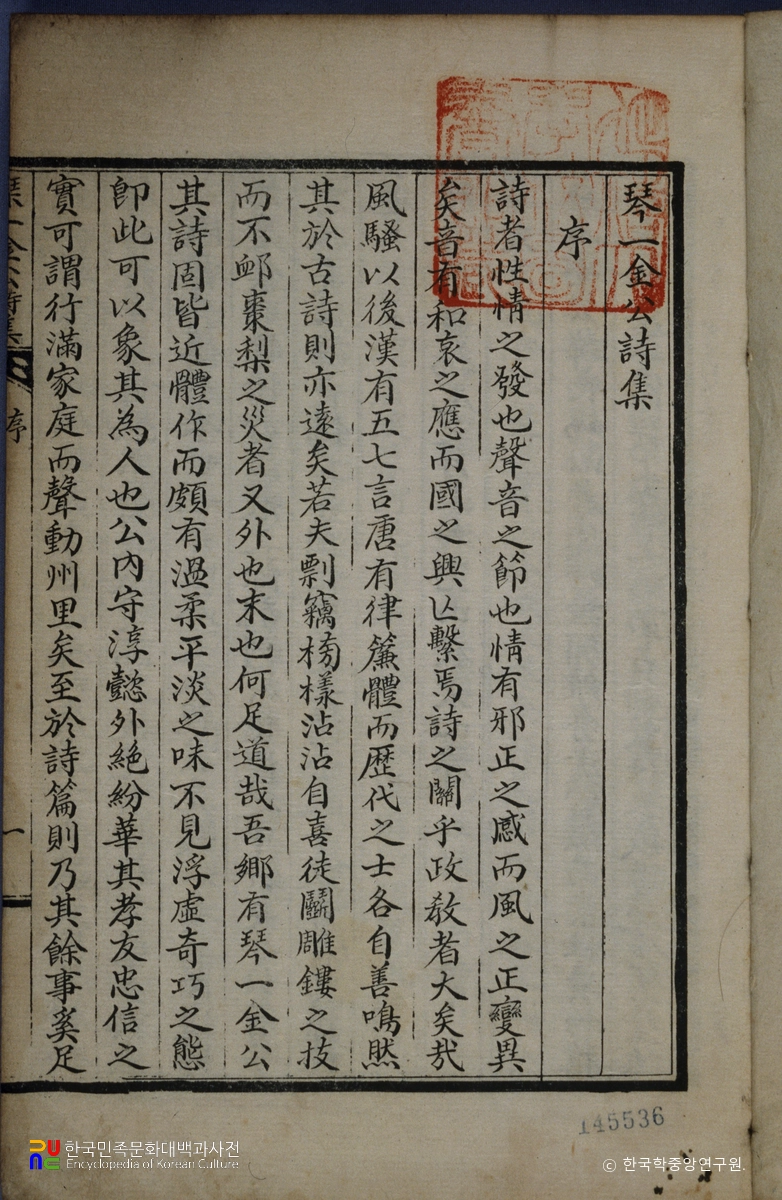 琴一金公詩集
序
詩者性情之發也聲音之節也情有邪正之感而風之正變異
矣音有和哀之應而國之興亾繫焉詩之關乎政敎者大矣哉
風騷以後漢有五七言唐有律簾體而歷代之士各自善鳴然
其於古詩則亦遠矣若夫剽竊模樣沾沾自喜徒鬪雕鏤之技
而不䘏棗梨之災者又外也末也何足道哉吾鄕有琴一金公
其詩固皆近體作而頗有溫柔平淡之味不見浮虛奇巧之態
卽此可以象其為人也公內守淳懿外絶紛華其孝友忠信之
實可謂行滿家庭而聲動州里矣至於詩篇則乃其餘事奚足
琴一金公詩集
序
一
145536
한국민족문화대백과사전
Encyclopedia of Korean Culture
© 한국학중앙연구원.